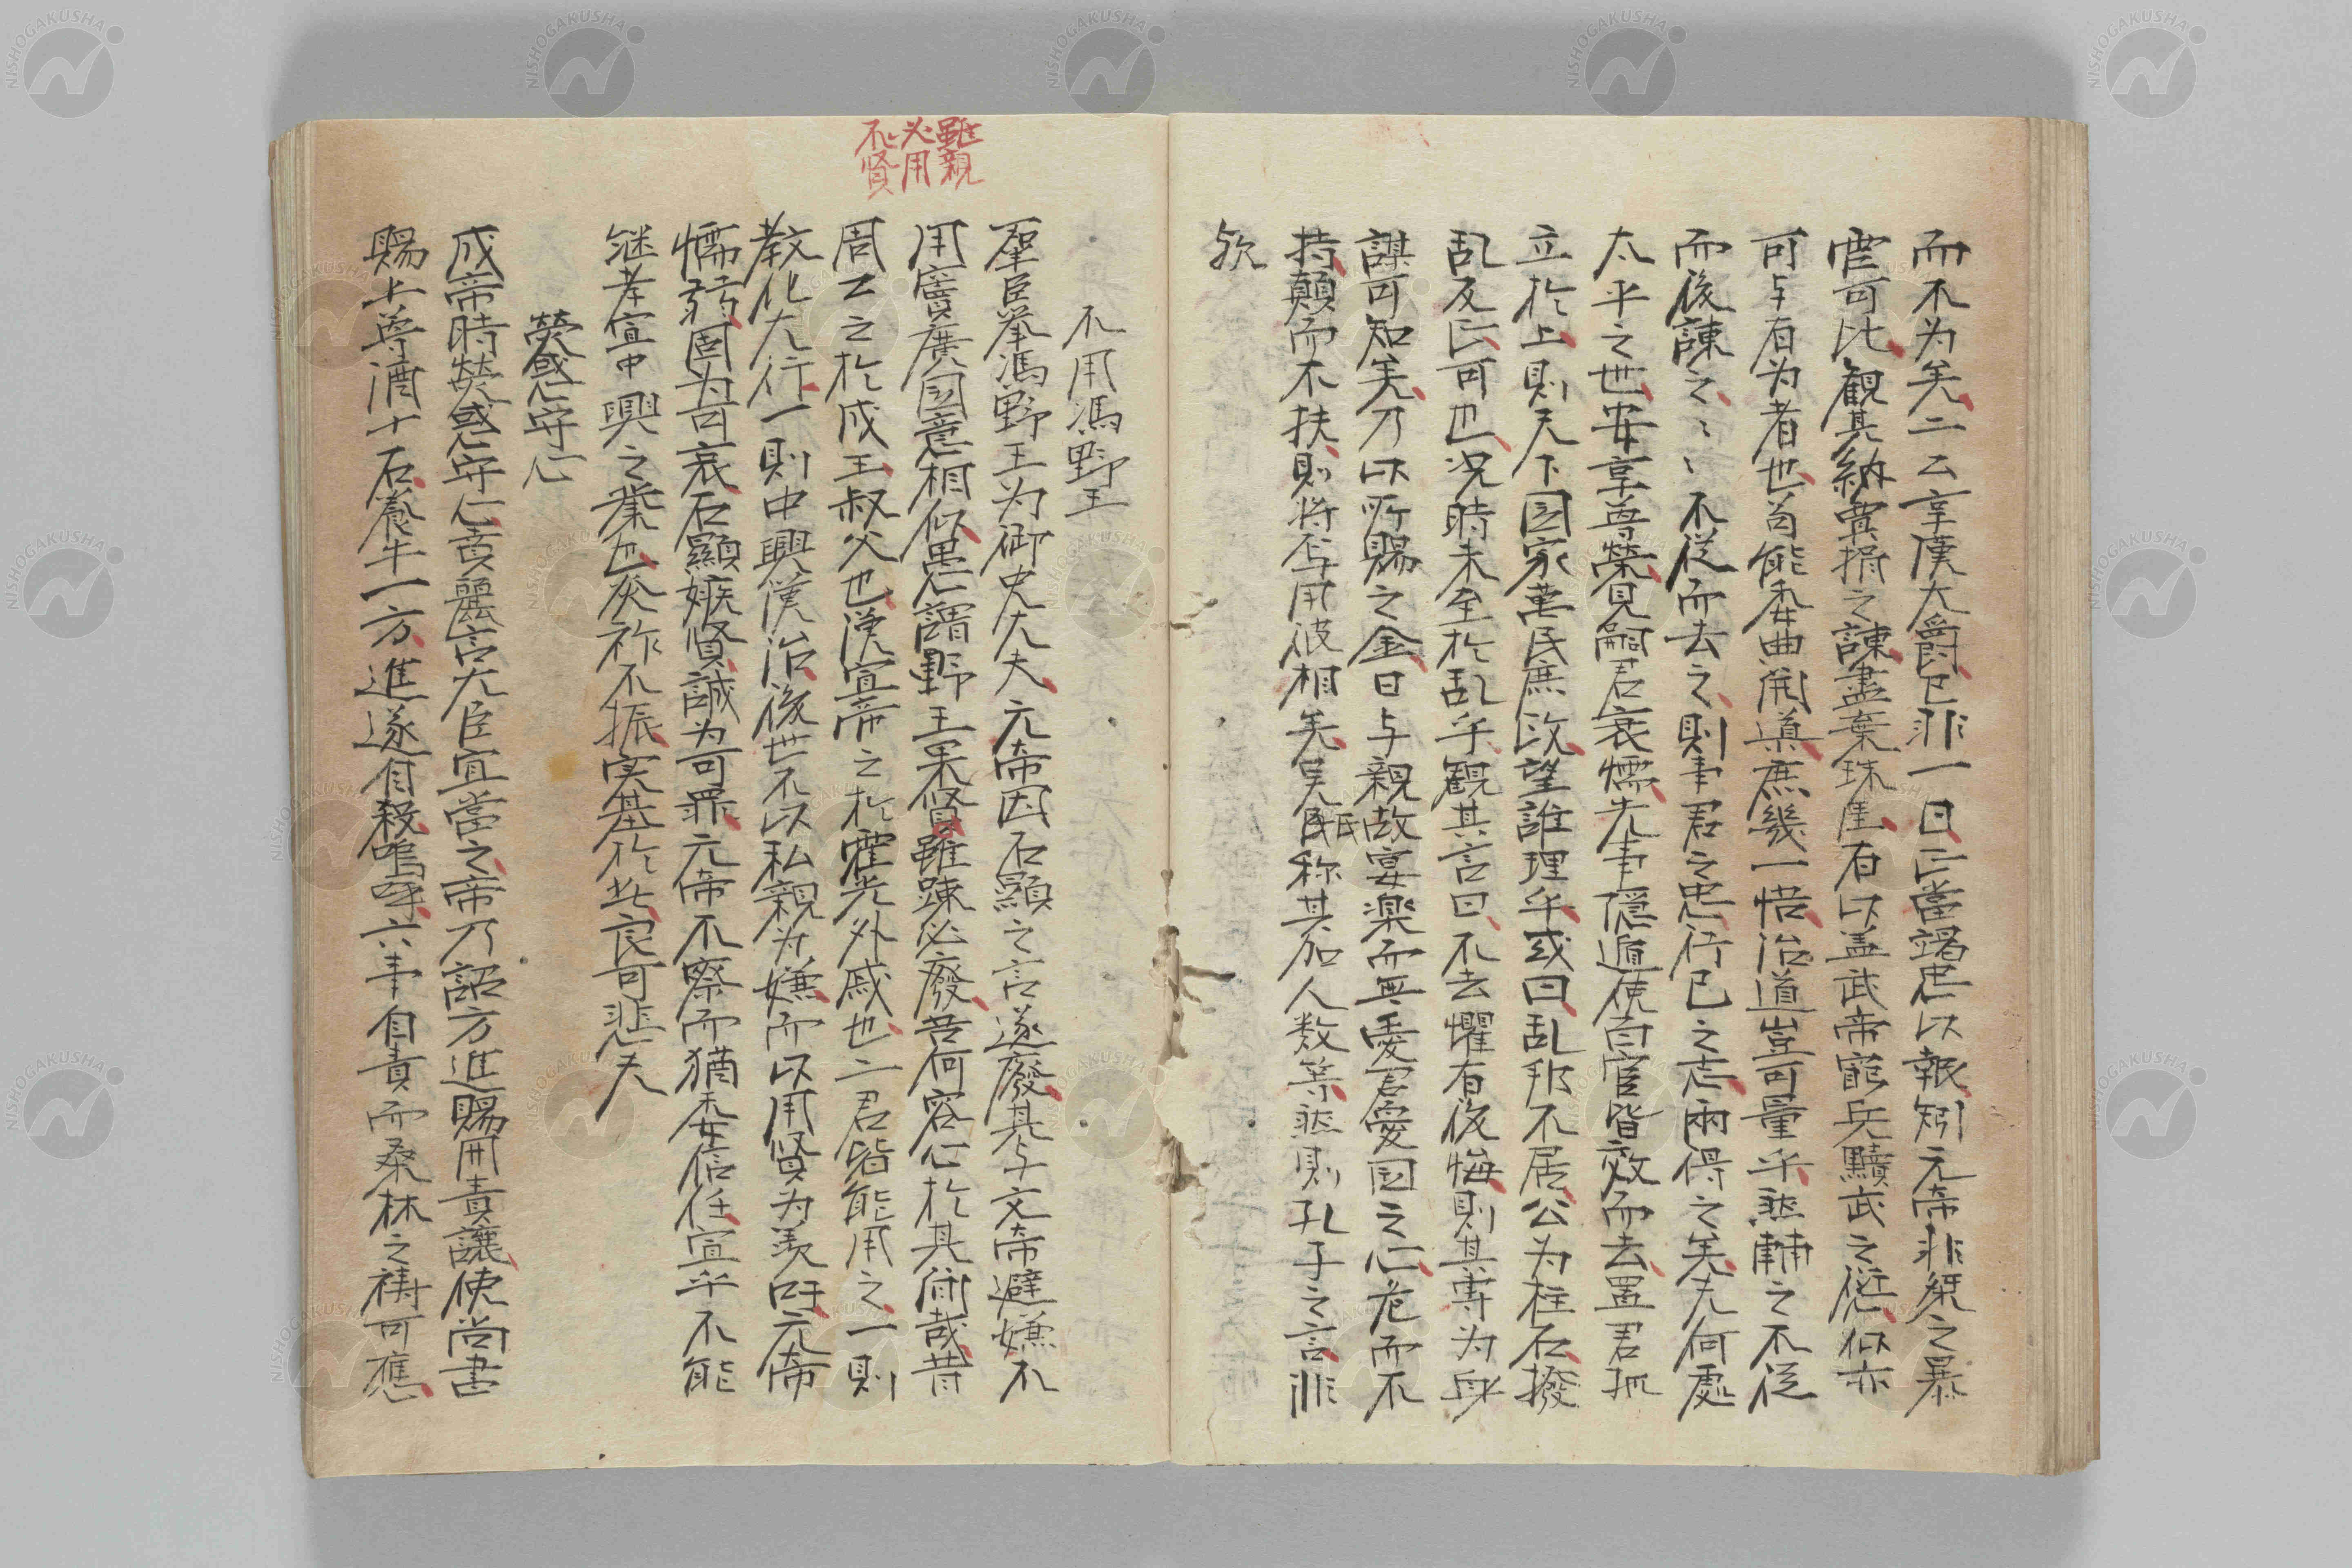 而不为矣二公享漢大爵已非一日正當竭忠以報矧元帝非桀之暴
虐可比観其納賈捐之諫盡棄珠厓有以盖武帝窮兵黷武之愆似亦
可与有为者也苟能委曲開導庶幾一悟治道豈可量乎然輔之不従
而後諫之〻〻不従而去之則事君之忠行已之志兩得之矣夫何處
太平之世安享尊荣見嗣君衰懦先事隠遁使百官皆效而去置君孤
立於上則天下国家萬民庶政望誰理乎或曰乱邦不居公为柱石撥
乱反正可也况時未至於乱乎観其言曰不去懼有後悔則其専为身
謀可知矣乃以所賜之金日与親故宴楽而無憂君愛国之心危而不
持顛而不扶則将焉用彼相矣吴氏称其加人数等然則孔子之言非
欤
不用馮野王
羣臣举馮野王为御史大夫元帝因石顯之言遂廢其与文帝避嫌不
用竇廣国意相似愚謂野王果賢雖踈必廢吾何容心於其間哉昔
周公之於成王叔父也漢宣帝之於霍光外戚也二君皆能用之一則
教化大行一則中興漢治後世不以私親为嫌而以用賢为美吁元帝
懦弱固为可哀石顯嫉賢誠为可罪元帝不察而猶委信任宜乎不能
継孝宣中興之業也炎祚不振実基於此良可悲夫
雖親
必用
不賢
熒惑守心
成帝時熒惑守心賁麗言大臣宜當之帝乃詔方進賜冊責讓使尚書
賜上尊酒十石養牛一方進遂自殺嗚呼六事自責而桑林之禱可應